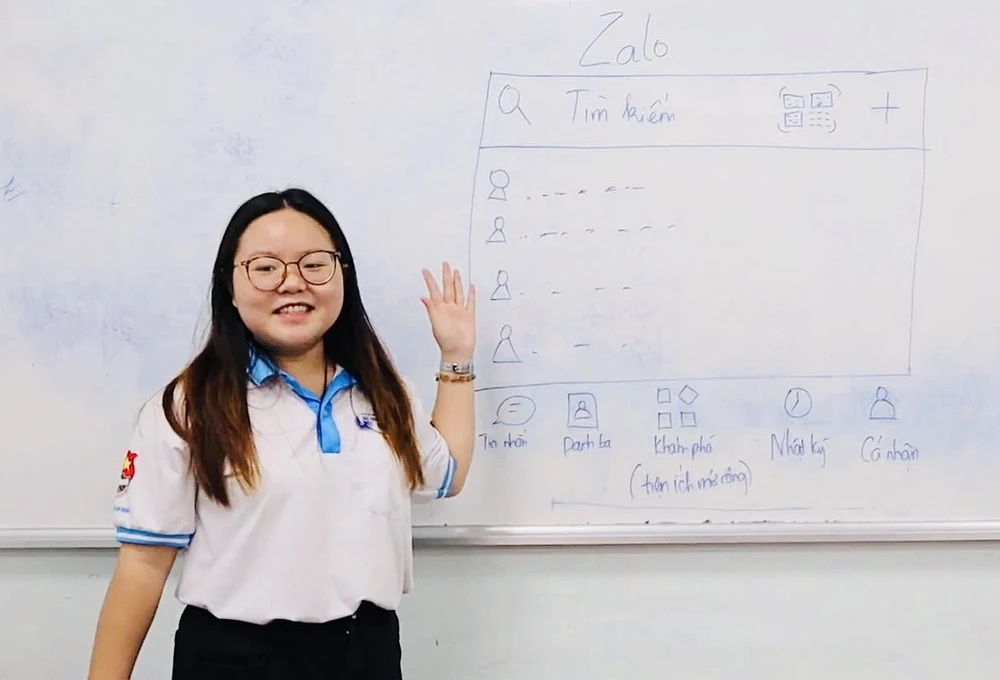 Zalo
Tìm kiếm +
Tin nhắn Danh bạ Khám phá Nhật ký Cá nhận
(tiện ích mở rộng)